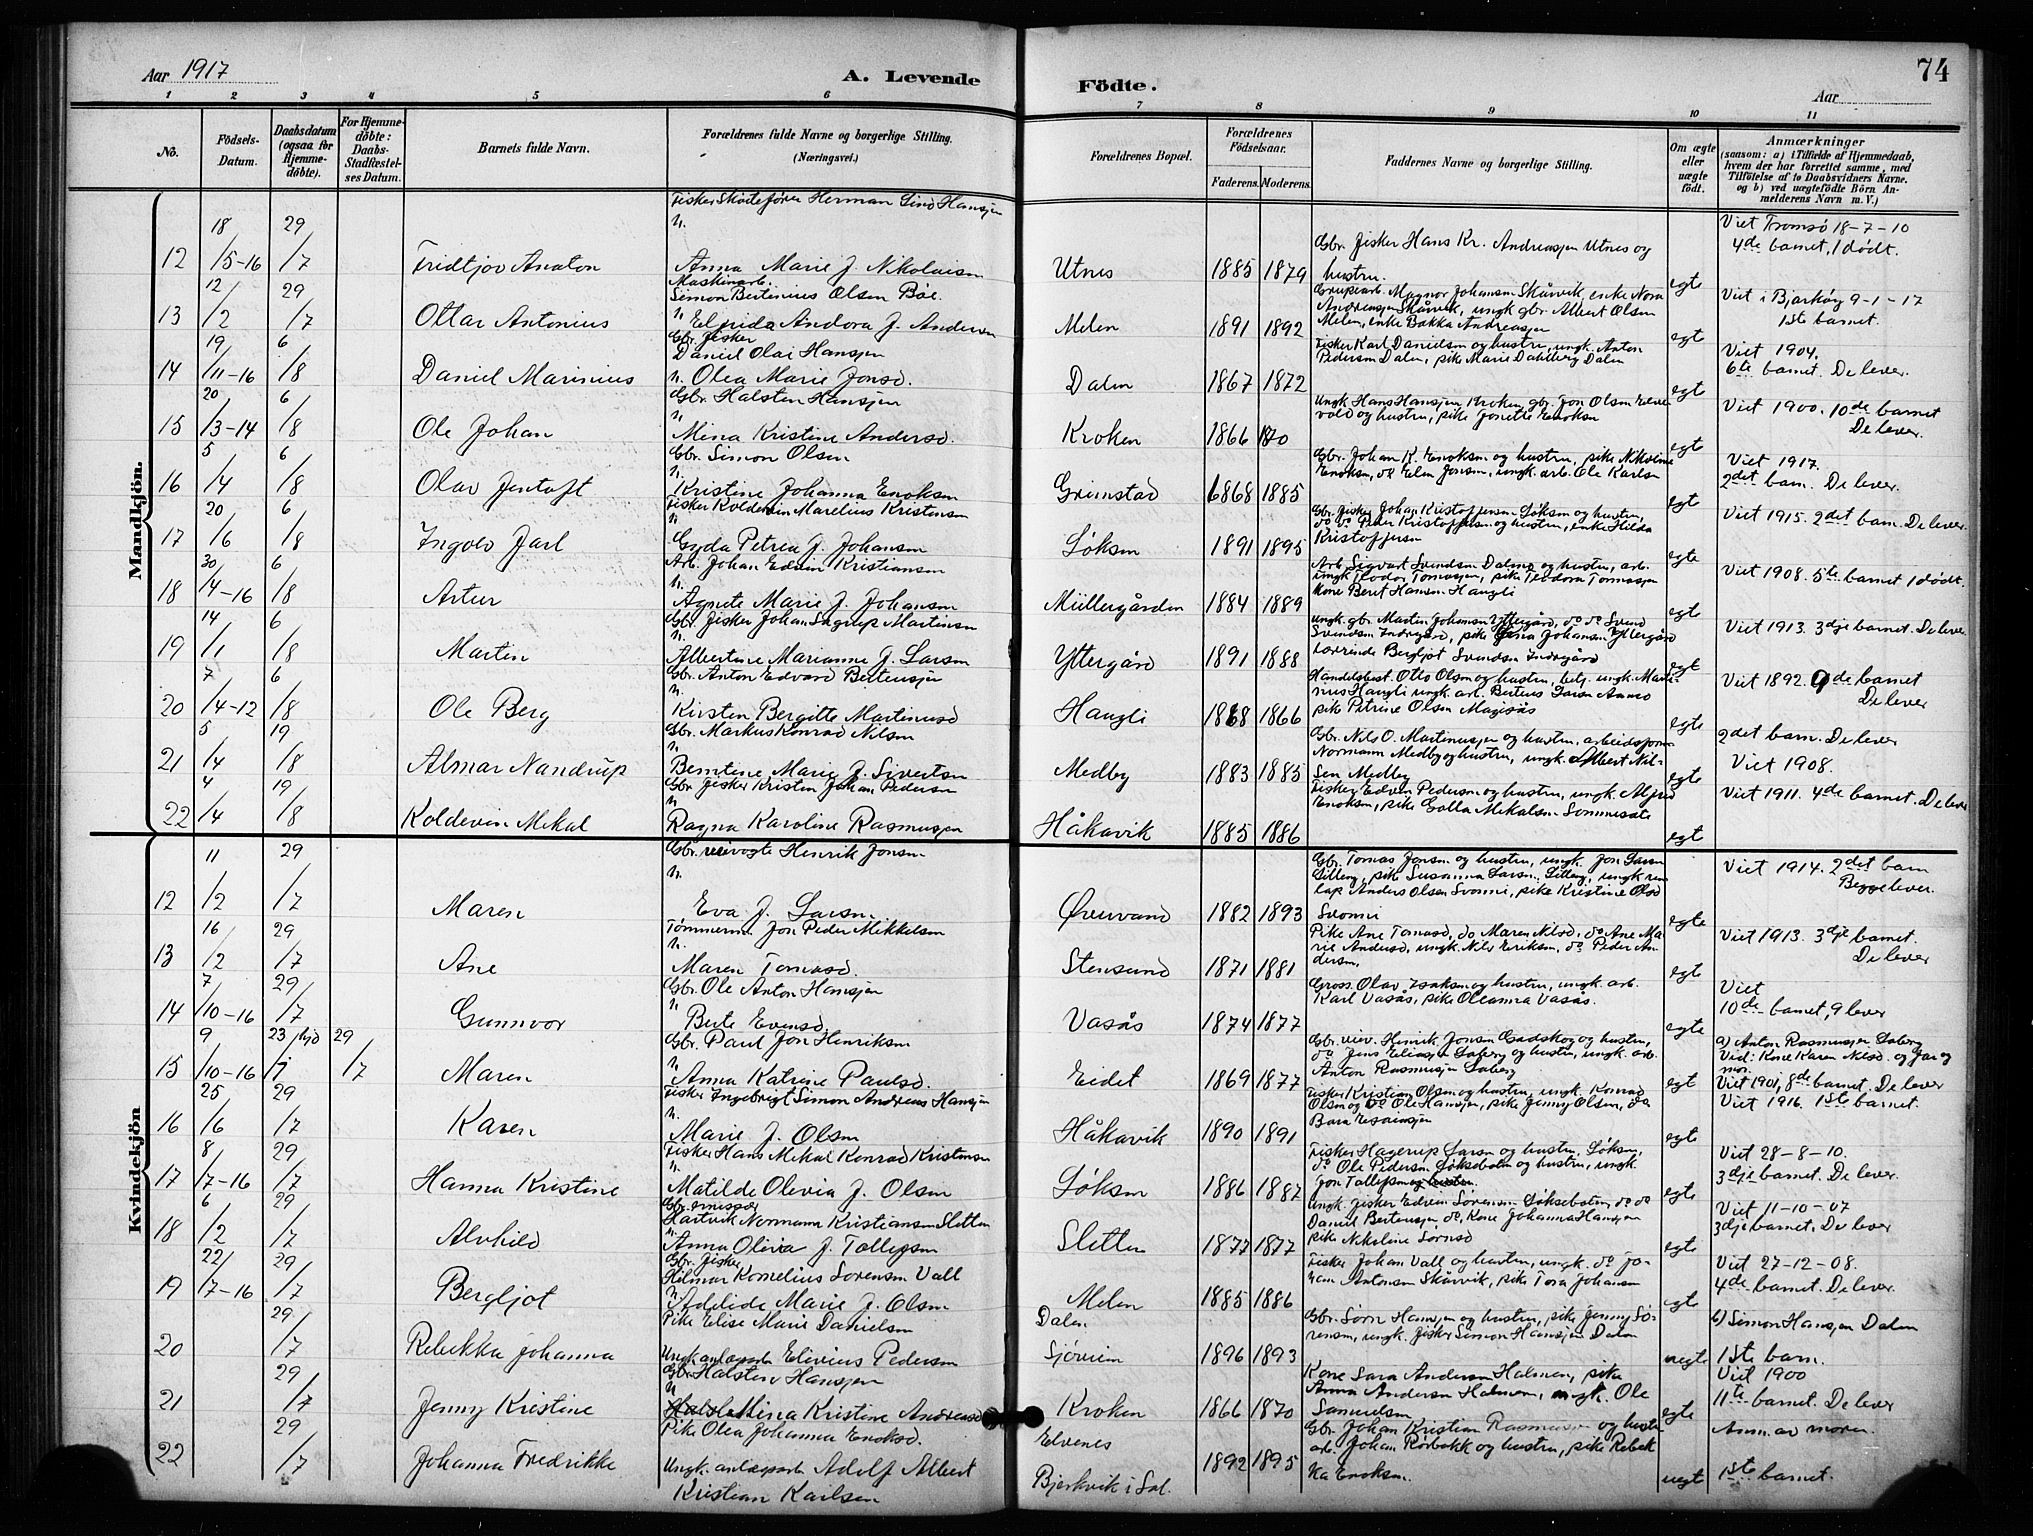 Aar 1917
A. Levende
Födte.
74
Aar
1 2 3 4 5 6 7 8 9 10 11
No.
Födsels-
Datum.
Daabsdatum
(ogsaa for
Hjemme-
döbte).
For Hjemme-
döbte:
Daabs-
Stadfæstel-
ses Datum.
Barnets fulde Navn.
Forældrenes fulde Navne og borgerlige Stilling.
(Næringsvei.)
Forældrenes Bopæl.
Forældrenes
Födselsaar.
Faderens. Moderens.
Faddernes Navne og borgerlige Stilling.
Om ægte
eller
uægte
födt.
Anmærkninger
(saasom: a) i Tilfælde af Hjemmedaab,
hvem der har forrettet samme, med
Tilföielse af to Daabsvidners Navne.
og b) ved uægtefödte Börn An-
melderens Navn m. V.)
Mandkjön.
12 18/5-16 29/7 Fridtjov Anaton
Herman Lind Hansen
h. Anna Marie J. Nikolaisen
Utnes 1885 1879
Gbr. fisker Hans Kr. Andreassen Utnes og
hustru.
egte
Viet Tromsø 18-7-10
4de barnet, 1 dødt.
13 12/2 29/7 Ottar Antonius
Maskinarb.
Simon Bertinius Olsen Bøe
h. Elfrida Andora J. Andersen
Melen 1891 1892
egte
Viet i Bjarkøy 9-1-17
1ste barnet.
14 19/11-16 6/8 Daniel Marinius
Gbr. fisker
Daniel Olai Hansen
h. Olea Marie Jonsd.
Dalen 1867 1872
Fisker Karl Danielsen og hustru, ungk. Anton
Pedersen Dalen, pike Marie Dahlberg Dalen
egte
Viet 1904.
6te barnet. De lever.
15 20/3-14 6/8 Ole Johan
Gbr. Halsten Hansen
h. Mina Kristine Andersd.
Kroken 1866 1870
Ungk. Hans Hansen, Kroken, gbr. Jon Olsen Elve-
vold og hustru, pike Jonette Enoksen
egte
Viet 1900. 10de barnet
De lever.
16 5/4 6/8 Olav Jentoft
Gbr. Simon Olsen
h. Kristine Johanna Enoksen
Grimstad 1868 1885
Gbr. Johan K. Enoksen og hustru, pike Nikoline
Enoksen, do Elen Jensen, ungk. arb. Ole Karlsen
egte
Viet 1917.
2det barn. De lever.
17 20/6 6/8 Ingolv Jarl
Fisker Koldevin Marelius Kristensen
h. Gyda Petrea J. Johansen
Løksen 1891 1895
Gbr. fisker Johan Kristoffersen Løksen og hustru,
do do Peder Kristoffersen og hustru, enke Hilda
Kristoffersen
egte
Viet 1915. 2det barn. De lever.
18 30/14-16 6/8 Artur
Arb. Johan Edvin Kristiansen
h. Agnete Marie J. Johansen
Müllergården 1884 1889
Arb. Sigvart Svendsen Dalmo og hustru, arb.
ungk. Teodor Tomassen, pike Teodora Tomassen
Kone Berit Hansen Haugli
egte
Viet 1908. 5te barnet 1 dødt.
19 14/1 6/8 Martin
Gbr. fisker Johan Martinsen
h. Albertine Marianne J. Larsen
Yttergård 1891 1888
Ungk. gbr. Martin Johansen Yttergård, do do Svend
Svendsen Indregård, pike Gina Johansen Yttergård
Lærerinde Bergljot Svendsen Indregård
egte
Viet 1913. 3dje barnet. De lever.
20 7/4-12 6/8 Ole Berg
Gbr. Anton Edvard Bertensen
h. Kirsten Bergitte Martinusd
Haugli 1868 1866
Handelsbest. Otto Olsen og hustru, betj. ungk. Mari-
nus Haugli ungk. arb. Berteus Larsen
pike Petrine Olsen
egte
Viet 1892. 9de barnet
De lever
21 5/4 19/8 Almar Nandrup
Gbr. Markus Konrad Nilsen
h. Berntine Marie J. Sivertsen
Medby 1883 1885
Gbr. Nils O. Martinussen og hustru, arbeidsform.
Normann Medby og hustru, ungk. Albert Nil-
sen Medby
egte
2det barn. De lever
Viet 1908.
22 4/4 19/8 Koldevin Mikal
Gbr fisker Kristen Johan Pedersen
h. Ragna Karoline Rasmussen
Håkavik 1885 1886
Fisker Edvin Pedersen og hustru, ungk. Alfred
Enoksen, pike Golla Mikalsen Sommersæte
egte
Viet 1911. 4de barnet. De lever
Kvindekjön
12 11/2 29/7 Maren
Gbr. Henrik Jonsen
h. Eva J. Larsen
Øvervand 1882 1893
Gbr. Tomas Jonsen og hustru, ungk. Jon Larsen
Lilleng, pike Susanna Larsen, Lilleng, ungk ren
lap Anders Olsen Svonni, pike Kristine Olsd
Svonni
egte
Viet 1914. 2det barn
Begge lever.
13 16/2 29/7 Ane
Tømmerm. Jon Peder Mikkelsen
h. Maren Tomasd.
Stensund 1871 1881
Pike Ane Tomasd, do Maren Nilsd, do Ane Ma-
rie Andersd, ungk. Nils Eriksen, do Peder An-
dersen.
egte
Viet 1913. 3dje barnet.
De lever
14 7/10-16 29/7 Gunnvor
Gbr. Ole Anton Hansen
h. Berte Evensd.
Vasås 1874 1877
Gross. Olav Isaksen og hustru, ungk. arb.
Karl Vasås, pike Oleanna Vasås.
egte
Viet
10de barnet, 9 lever
15 9/10-16 23/7 hjd 29/7 Maren
Gbr. Paul Jon Henriksen
h. Anna Katrine Paulsd.
Eidet 1869 1877
Gbr. Henrik Jonsen Gadskog og hustru,
do Jens Eliassen Soberg og hustru, ungk. arb.
Anton Rasmussen Soberg
egt
a) Anton Rasmussen Soberg
Vid: Kone Karen Nilsd. og far og
mor.
Viet 1901, 8de barnet. De lever
16 25/6 29/7 Karen
Fisker Ingebrigt Simon Andreas Hansen
h. Marie J. Olsen
Håkavik 1890 1891
Fisker Kristian Olsen og hustru, ungk. Konrad
Olsen og do Ole Hansen, pike Jenny Olsen, do
Bara Esaiassen
egte
Viet 1916. 1ste barnet.
17 8/7-16 29/7 Hanna Kristine
Fisker Hans Mikal Konrad Kristensen
h. Matilde Olevia J. Olsen
Løksen 1886 1887
Fisker Hagerup Larsen og hustru, Løksen,
do Ole Pedersen Løksebotn og hustru, ungk.
Jon Tollefsen
egte
Viet 28-8-10.
3dje barnet. De lever.
18 6/2 29/7 Alvhild
Hartvik Normann Kristiansen Sletten
h. Anna Olivia J. Tollefsen
Sletten 1877 1877
Ungk. fisker Edvin Sørensen Løksebotn, do do
Daniel Bertensen, do, Kone Johanna Hansen
pike Nikoline Sørnsd
egte
Viet 11-10-07
3dje barnet. De lever
19 22/7-16 29/7 Bergljot
Gbr. fisker
Hilmar Kornelius Sorensen Vall
h. Adelide Marie J. Olsen
Melen 1885 1886
Fisker Johan Vall og hustru, ungk. do Jo-
han Antonsen Skårvik, pike Tora Johansen
egte
Viet 27-12-08.
4de barnet. De lever.
20 29/7 Rebekka Johanna
Pike Elise Marie Danielsen
Ungk. anlægsarb. Elivius Pedersen
Dalen
Sjøveien 1896 1893
Gbr. Sørn Hansen og hustru, pike Jenny Sø-
rensen, ungk. fisker Simon Hansen Dalen
uegte
b) Simon Hansen Dalen
1ste barn.
21 29/7 Jenny Kristine
Gbr Halsten Hansen
h. Mina Kristine Andersd
Kroken 1866 1870
Kone Sara Andersen Halmen, pike
Anna Andersen Halmen, ungk. Ole
Samuelsen
egte
Viet 1900
11te barnet. De lever
22 29/7 Johanna Fredrikke
Pike Olea Johanna Enoksd.
Ungk. anlægsarb Adolf Albert
Kristian Karlsen
Elvenes
Bjerkvik i Sal. 1892 1895
Gbr. Johan Kristian Rasmussen og hustru
arb. Johan Rørbakk og hustru, pike Rebek
ka Enoksen.
uegt
Anm. av moren.
1ste barnet.